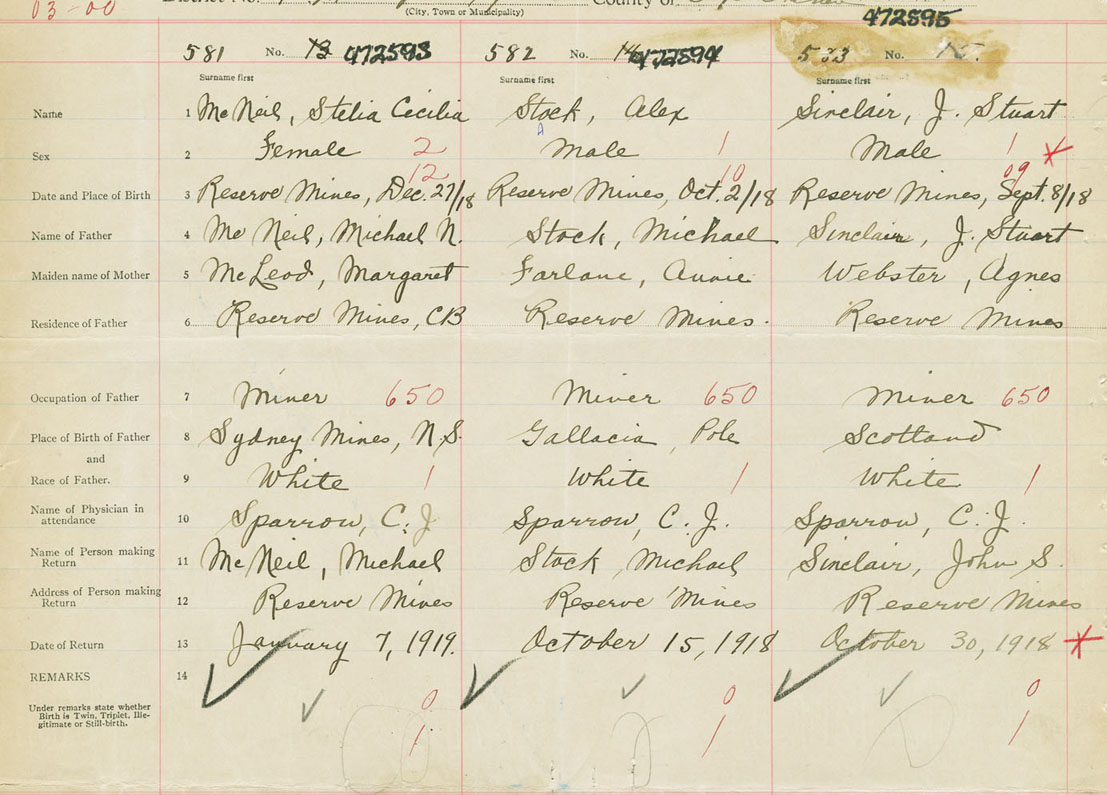 03-00 District No. County of
(City, Town or Municipality)
472595
581 No. 13 472593 582 No. 14 472594 583 No. 15.
Surname first Surname first Surname first
Name 1 McNeil, Stelia Cecilia Stock, Alex Sinclair, J. Stuart
A
Sex 2 Female 2 Male 1 Male 1 ✗
12 10 09
Date and Place of Birth 3 Reserve Mines, Dec. 27/18 Reserve Mines, Oct. 2/18 Reserve Mines, Sept. 8/18
Name of Father 4 Mc Neil, Michael N. Stock, Michael Sinclair, J. Stuart
Maiden name of Mother 5 McLeod, Margaret Farlane, Annie Webster, Agnes
Residence of Father 6 Reserve Mines, CB Reserve Mines. Reserve Mines
Occupation of Father 7 Miner 650 Miner 650 Miner 650
Place of Birth of Father 8 Sydney Mines, N.S. Gallacia, Pole Scotland
and
Race of Father. 9 White 1 White 1 White 1
Name of Physician in
attendance 10 Sparrow, C. J Sparrow, C. J. Sparrow, C. J.
Name of Person making
Return 11 McNeil, Michael Stock, Michael Sinclair, John S.
Address of Person making
Return 12 Reserve Mines Reserve Mines Reserve Mines
Date of Return 13 January 7, 1919. October 15, 1918 October 30, 1918 ✗
REMARKS 14
0 0 0
Under remarks state whether
Birth is Twin, Triplet, Ille-
gitimate or Still-birth.
1 1 1